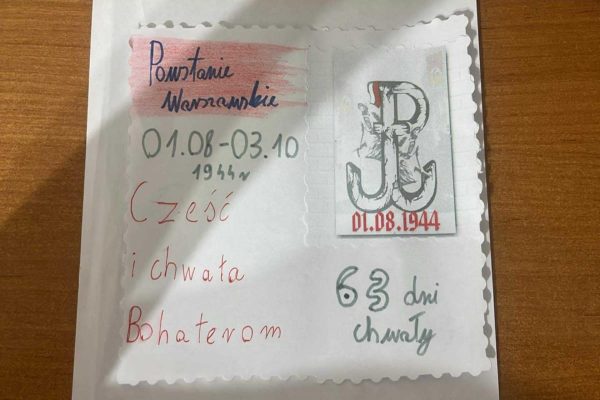 Powstanie
Warszawskie
01.08-03.10
1944r
Cześć
i chwała
Bohaterom
01.08.1944
63 dni
chwały